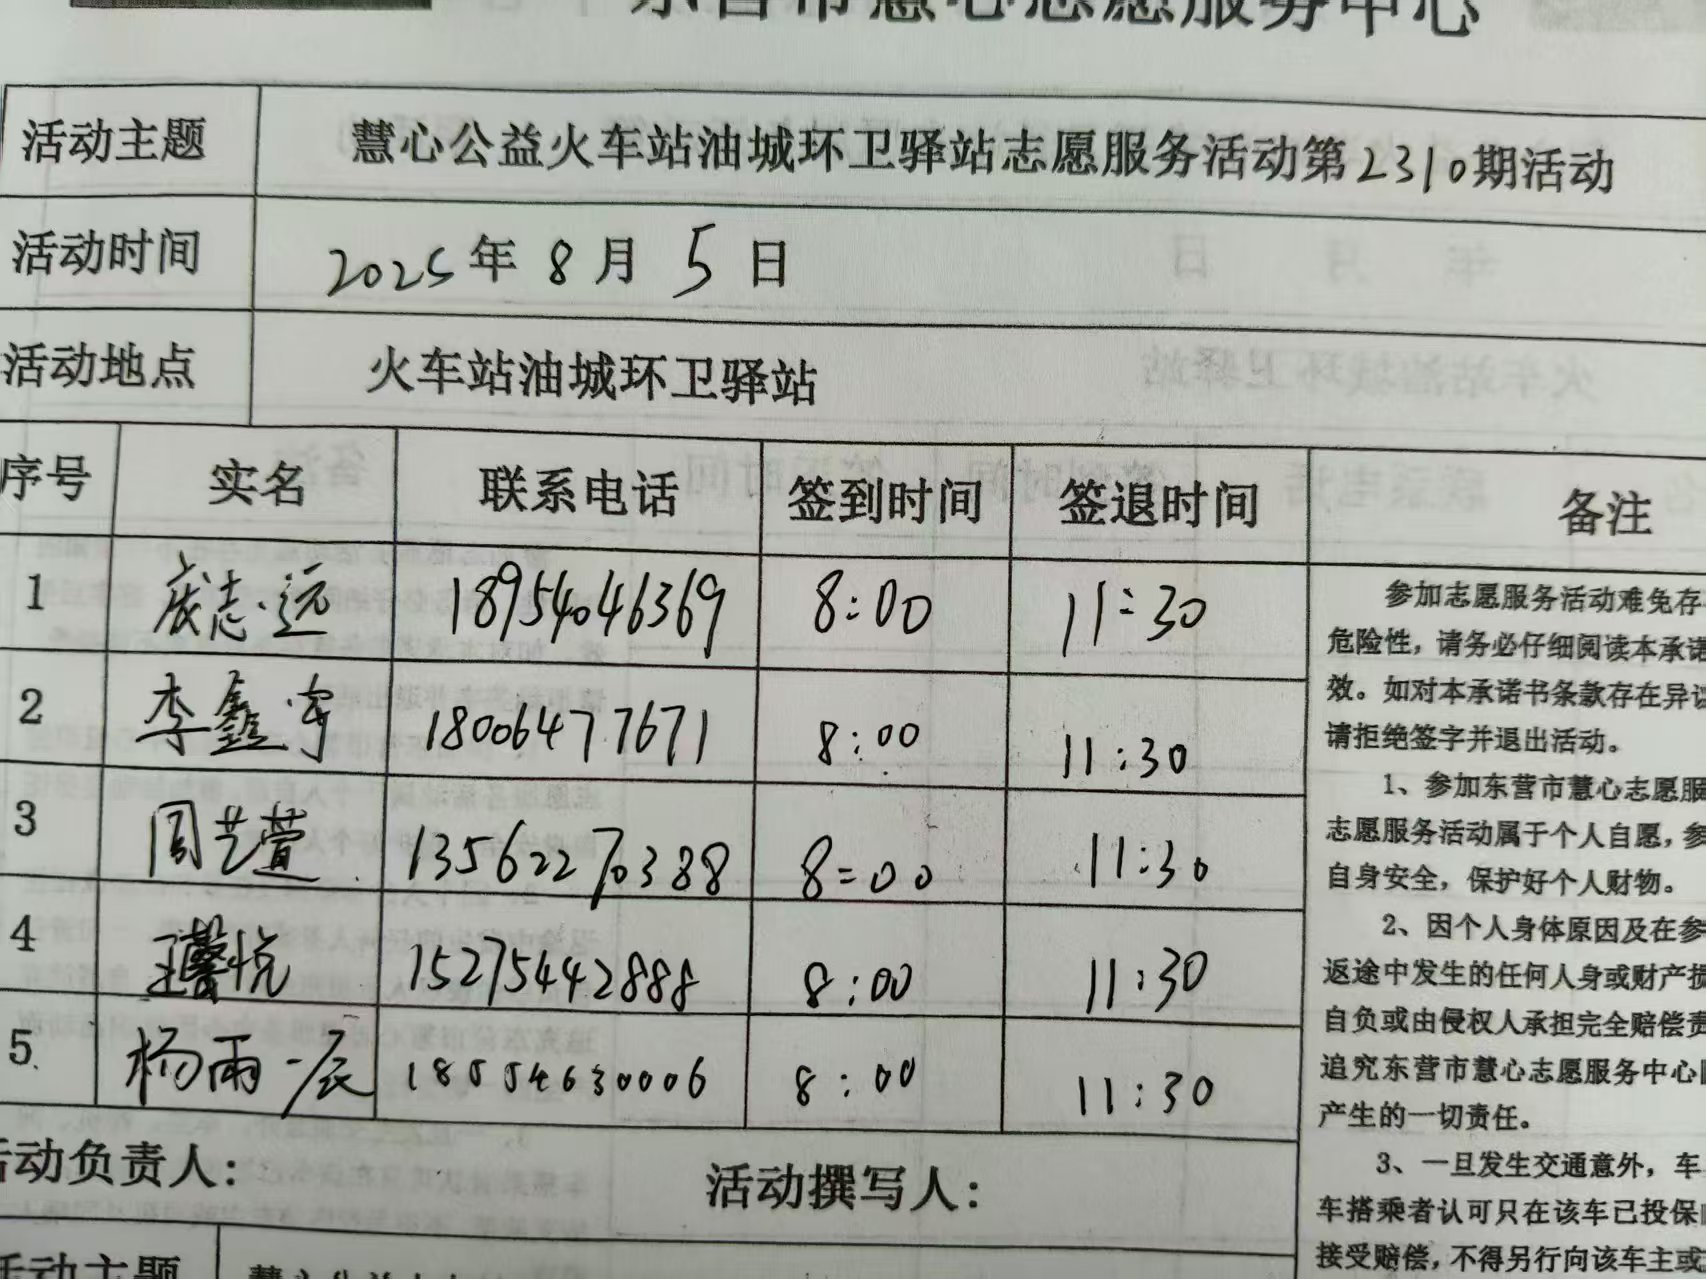 东营市慧心志愿服务中心
活动主题 慧心公益火车站油城环卫驿站志愿服务活动第2310期活动
活动时间 2025年8月5日
活动地点 火车站油城环卫驿站
序号 实名 联系电话 签到时间 签退时间 备注
1 志远 18954046369 8:00 11:30
2 李鑫宇 18006477671 8:00 11:30
3 周艺萱 13562270388 8:00 11:30
4 王馨悦 15275442888 8:00 11:30
5 杨雨辰 18554630006 8:00 11:30
参加志愿服务活动难免存
危险性，请务必仔细阅读本承诺
效。如对本承诺书条款存在异议
请拒绝签字并退出活动。
1、参加东营市慧心志愿服
志愿服务活动属于个人自愿，参
自身安全，保护好个人财物。
2、因个人身体原因及在参
返途中发生的任何人身或财产损
自负或由侵权人承担完全赔偿责
追究东营市慧心志愿服务中心
产生的一切责任。
3、一旦发生交通意外，车
车搭乘者认可只在该车已投保
接受赔偿，不得另行向该车主或
活动负责人： 活动撰写人：
活动主题